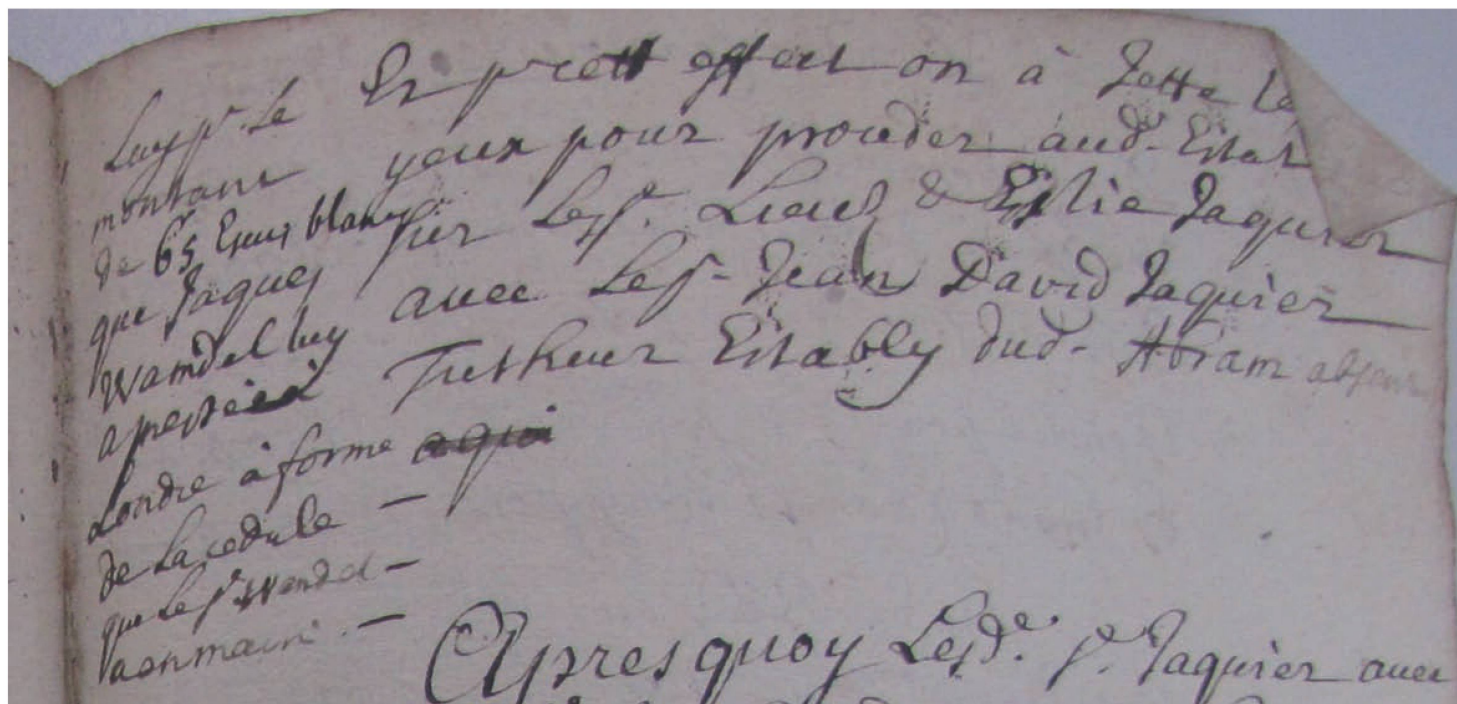 Luy pr. Le
montant
de 65 Escus blancs
que Jaques
Wamdel luy
a presté à
Londre à forme
de La cedule —
que Le sr. Wendel —
a en main. —
Et pr cett effect on à Jette le
yeux pour proceder aud. Estat
sur & Eslie Jaquier
avec Le sr. Jean David Jaquier
Tutheur Estably dud. Abram absent
Apres quoy Lesd. sr. Jaquier avec